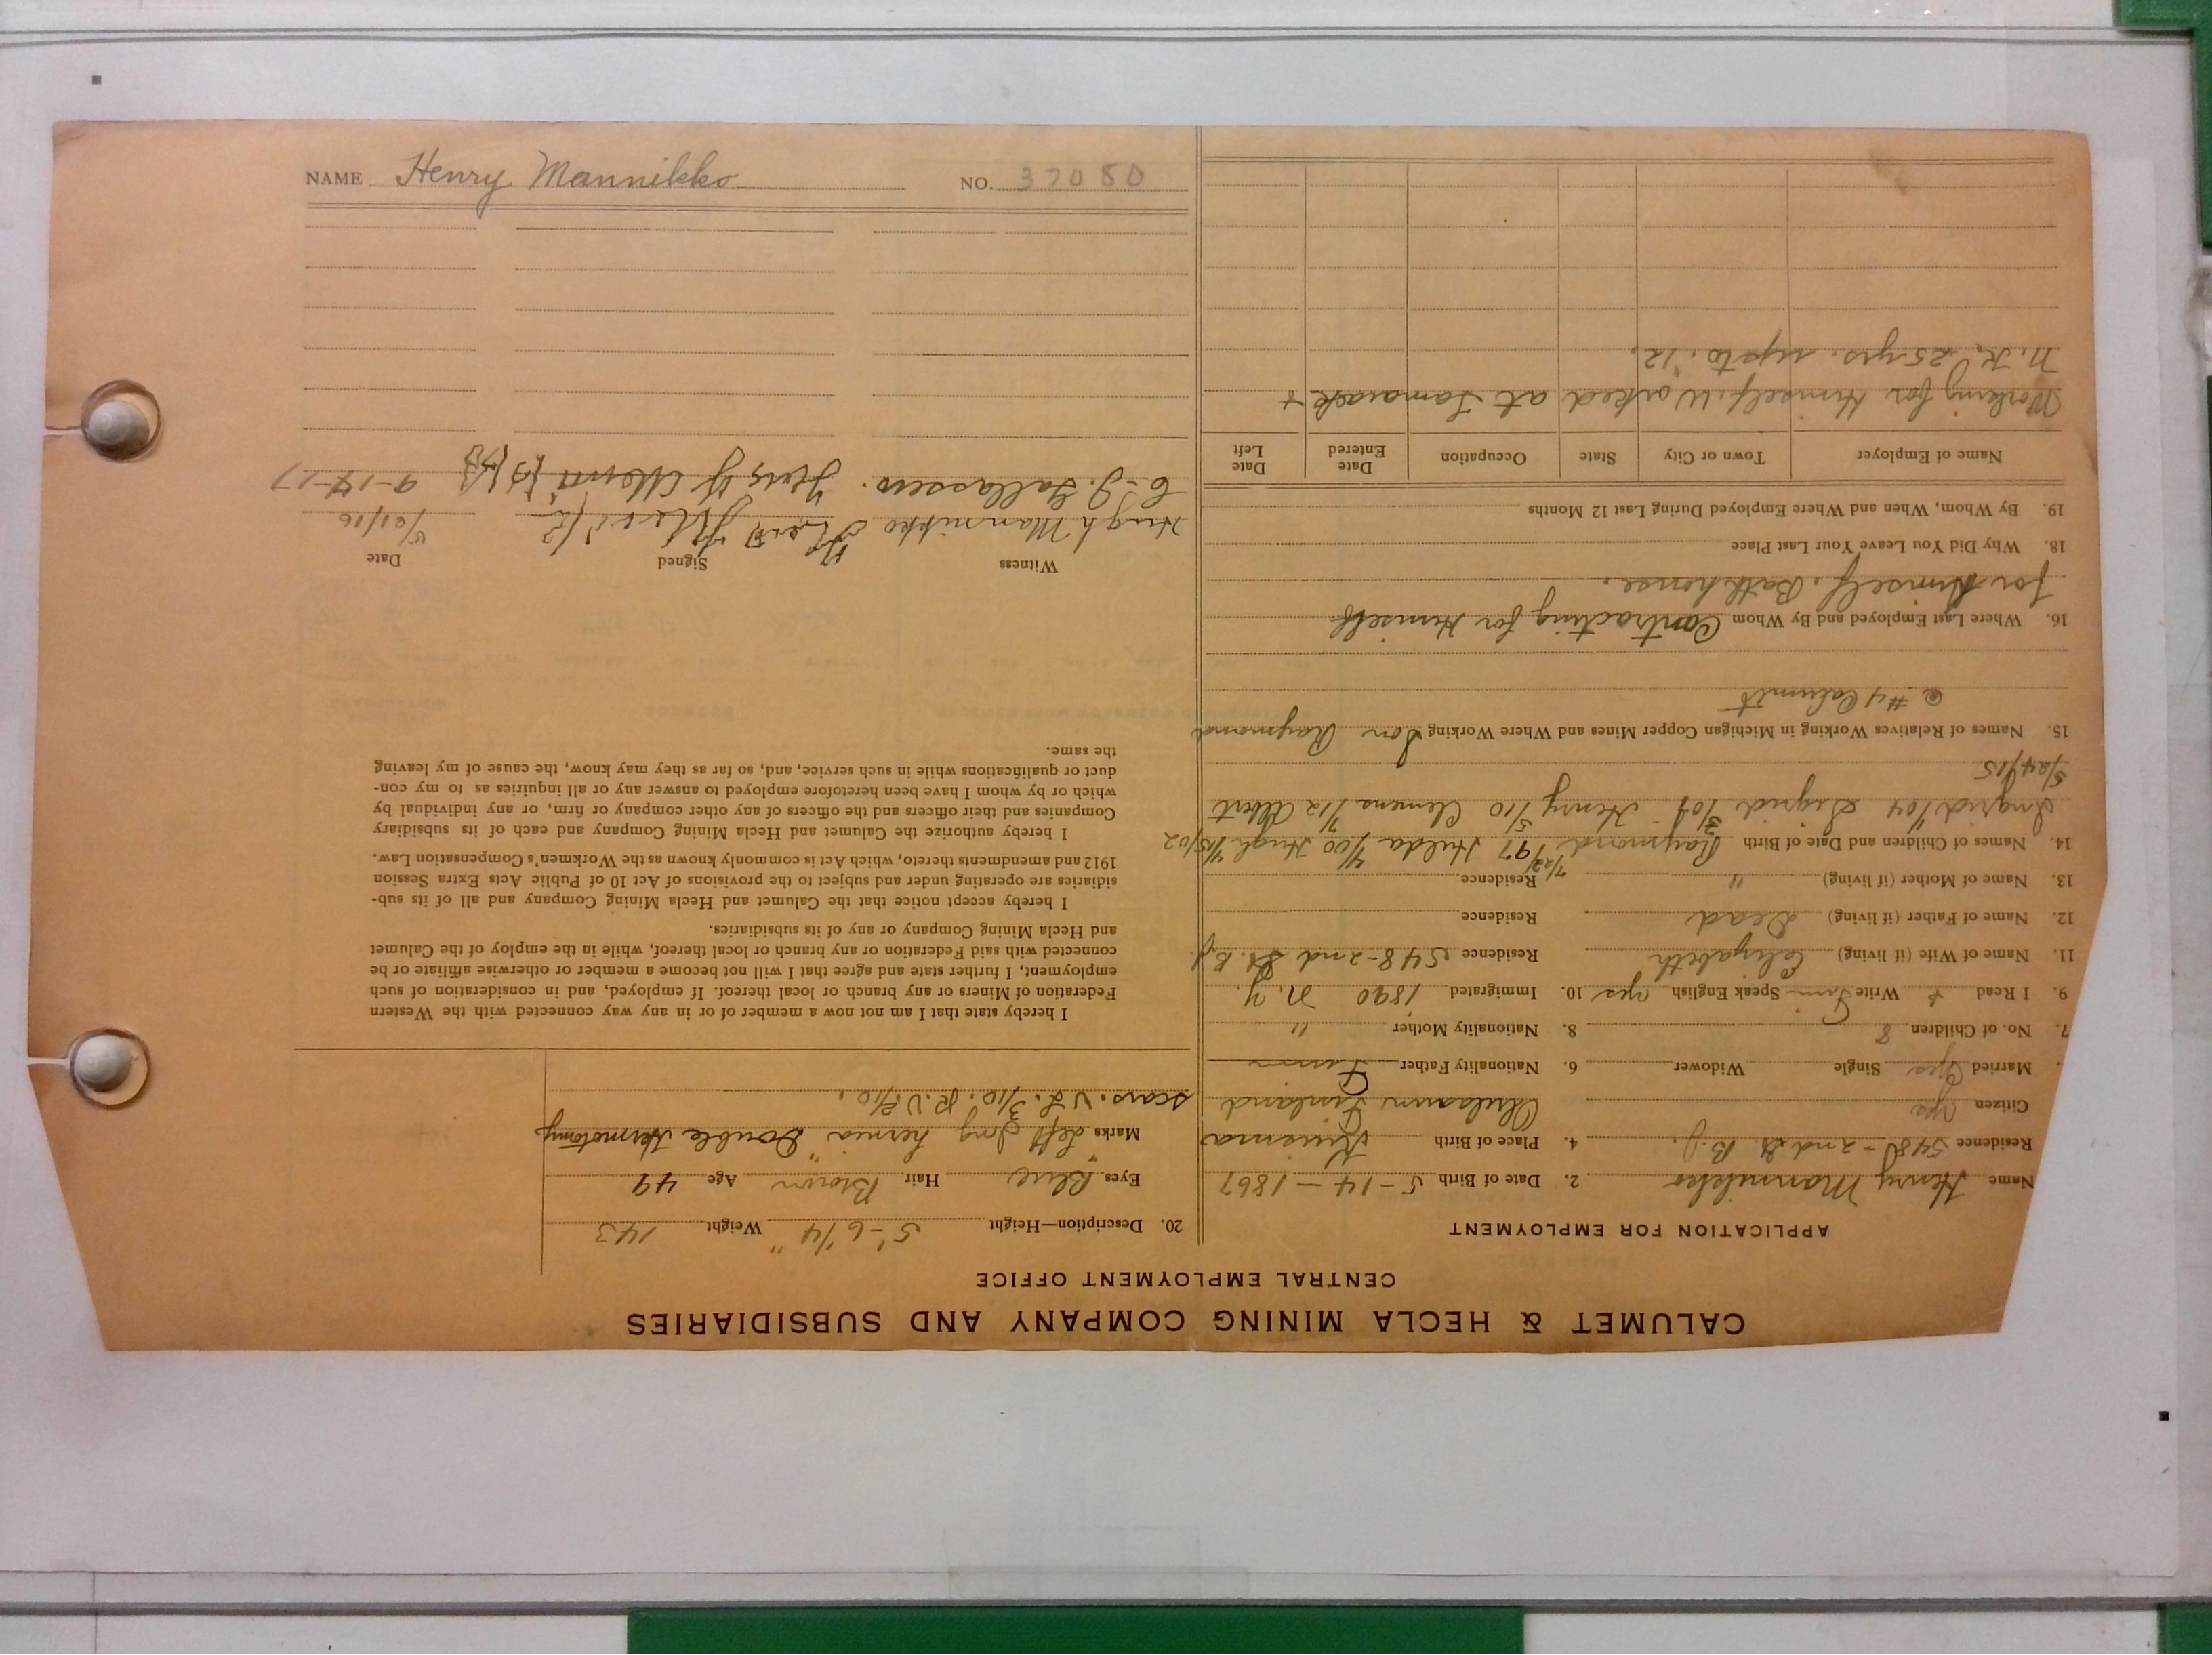 CALUMET & HECLA MINING COMPANY AND SUBSIDIARIES
CENTRAL EMPLOYMENT OFFICE
APPLICATION FOR EMPLOYMENT
Name Henry Mannikko 2. Date of Birth 5-14-1867
Residence 5480-2nd St B.J. 4. Place of Birth
Citizen yes Finland
Married yes Single Widower 6. Nationality Father Finn
7. No. of Children 8 8. Nationality Mother "
9. I Read + Write Finn Speak English yes 10. Immigrated 1890 N.Y.
11. Name of Wife (if living) Elizabeth Residence 5448-2nd St. B.J.
12. Name of Father (if living) Dead Residence
13. Name of Mother (if living) " Residence
14. Names of Children and Date of Birth Raymond 7/23/97 Hilda 4/00 Hugh 4/15/02
Ingrid 1/04 Sigrid 3/08 Henry 5/10 Clemens 7/12 Albert
5/24/15
15. Names of Relatives Working in Michigan Copper Mines and Where Working Son Raymond
@ #4 Calumet
16. Where Last Employed and By Whom Contracting for Himself
for Himself. Bathhouse.
18. Why Did You Leave Your Last Place
19. By Whom, When and Where Employed During Last 12 Months
Name of Employer Town or City State Occupation Date Entered Date Left
Working for Himself. Worked at Tamarack +
N.K. 25 yrs. up to '12.
20. Description—Height 5'-6 1/4" Weight 143
Eyes Blue Hair Brown Age 49
Marks Left Ing hernia "Double Herniotomy
scars. V.L. 3/10. R.V. 2/10.
I hereby state that I am not now a member of or in any way connected with the Western
Federation of Miners or any branch or local thereof. If employed, and in consideration of such
employment, I further state and agree that I will not become a member or otherwise affiliate or be
connected with said Federation or any branch or local thereof, while in the employ of the Calumet
and Hecla Mining Company or any of its subsidiaries.
I hereby accept notice that the Calumet and Hecla Mining Company and all of its sub-
sidiaries are operating under and subject to the provisions of Act 10 of Public Acts Extra Session
1912 and amendments thereto, which Act is commonly known as the Workmen's Compensation Law.
I hereby authorize the Calumet and Hecla Mining Company and each of its subsidiary
Companies and their officers and the officers of any other company or firm, or any individual by
which or by whom I have been heretofore employed to answer any or all inquiries as to my con-
duct or qualifications while in such service, and, so far as they may know, the cause of my leaving
the same.
Witness Signed Date
Hugh Mannikko /21/16
C. J. Sallassew. 9-14-17
NAME Henry Mannikko NO. 37080